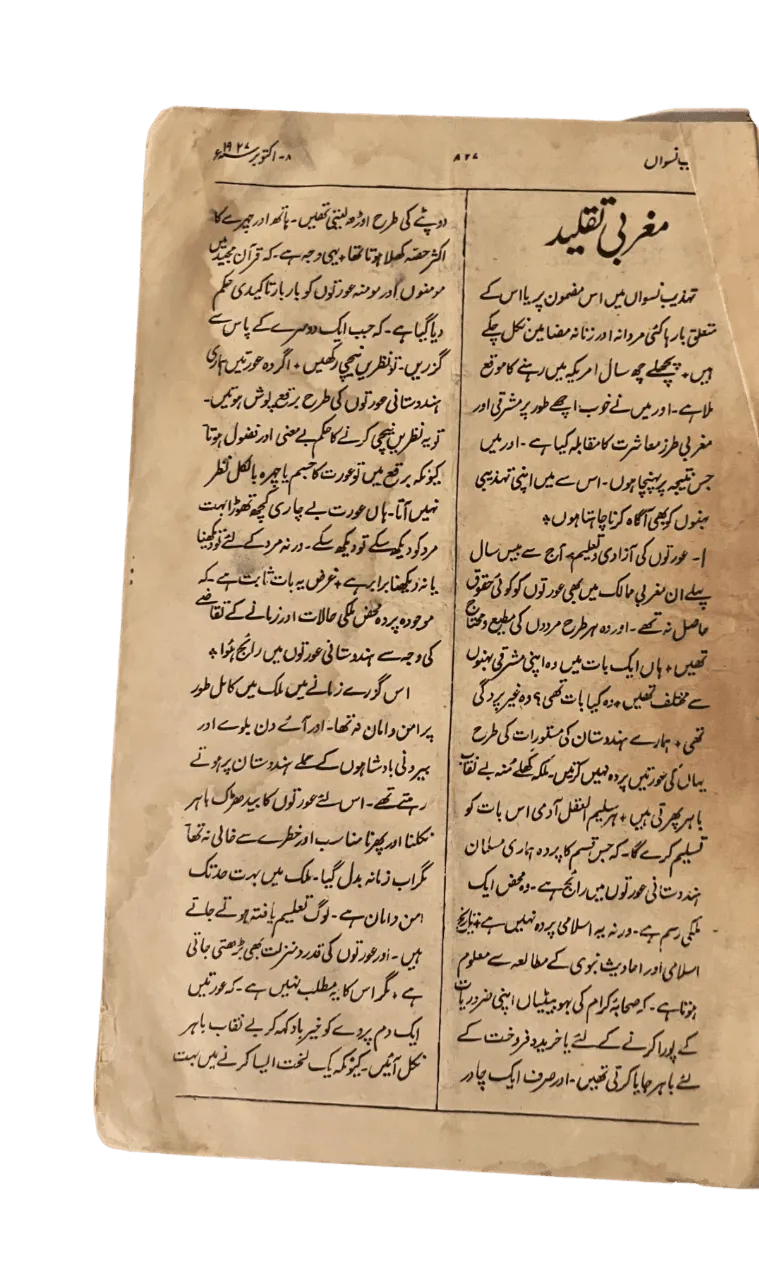 ب نسواں
۸۲۷
۸- اکتوبر سنہ ۱۹۲۷ء
مغربی تقلید
تہذیب نسواں میں اس مضمون پر یا اس کے
متعلق بارہا کئی مردانہ اور زنانہ مضامین نکل چکے
ہیں ٭ پچھلے چھ سال امریکہ میں رہنے کا موقع
ملا ہے - اور میں نے خوب اچھے طور پر مشرقی اور
مغربی طرز معاشرت کا مقابلہ کیا ہے - اور میں
جس نتیجہ پر پہنچا ہوں - اس سے میں اپنی تہذیبی
بہنوں کو بھی آگاہ کرنا چاہتا ہوں ٭
۱- عورتوں کی آزادی و تعلیم - آج سے بیس سال
پہلے ان مغربی ممالک میں بھی عورتوں کو کوئی حقوق
حاصل نہ تھے - اور وہ ہر طرح مردوں کی مطیع و محتاج
تھیں ٭ ہاں ایک بات میں وہ اپنی مشرقی بہنوں
سے مختلف تھیں ٭ وہ کیا بات تھی؟ وہ غیر پردگی
تھی ٭ ہمارے ہندوستان کی مستورات کی طرح
یہاں کی عورتیں پردہ نہیں کرتیں - بلکہ کھلے مُنہ بے نقاب
باہر پھرتی ہیں ٭ ہر سلیم العقل آدمی اس بات کو
تسلیم کرے گا - کہ جس قسم کا پردہ ہماری مسلمان
ہندوستانی عورتوں میں رائج ہے - وہ محض ایک
ملکی رسم ہے - ورنہ یہ اسلامی پردہ نہیں ہے ٭ تاریخ
اسلامی اور احادیث نبوی کے مطالعہ سے معلوم
ہوتا ہے - کہ صحابہ کرام کی بہو بیٹیاں اپنی ضروریات
کے پورا کرنے کے لئے یا خرید و فروخت کے
لئے باہر جایا کرتی تھیں - اور صرف ایک چادر
دوپٹے کی طرح اوڑھ لیتی تھیں - ہاتھ اور چہرے کا
اکثر حصہ کھلا ہوتا تھا ٭ یہی وجہ ہے - کہ قرآن مجید میں
مومنوں اور مومنہ عورتوں کو بار بار تاکیدی حکم
دیا گیا ہے - کہ جب ایک دوسرے کے پاس سے
گزریں - تو نظریں نیچی رکھیں ٭ اگر وہ عورتیں ہماری
ہندوستانی عورتوں کی طرح برقع پوش ہوتیں -
تو یہ نظریں نیچی کرنے کا حکم بے معنی اور فضول ہوتا
کیونکہ برقع میں تو عورت کا جسم یا چہرہ بالکل نظر
نہیں آتا - ہاں عورت بے چاری کچھ تھوڑا بہت
مرد کو دیکھ سکے تو دیکھ سکے - ورنہ مرد کے لئے تو دیکھنا
یا نہ دیکھنا برابر ہے ٭ غرض یہ بات ثابت ہے - کہ
موجودہ پردہ محض ملکی حالات اور زمانے کے تقاضے
کی وجہ سے ہندوستانی عورتوں میں رائج ہوا ٭
اس گزرے زمانے میں ملک میں کامل طور
پر امن و امان نہ تھا - اور آئے دن بلوے اور
بیرونی بادشاہوں کے حملے ہندوستان پر ہوتے
رہتے تھے - اس لئے عورتوں کا بیدھڑک باہر
نکلنا اور پھرنا مناسب اور خطرے سے خالی نہ تھا
مگر اب زمانہ بدل گیا - ملک میں بہت حد تک
امن و امان ہے - لوگ تعلیم یافتہ ہوتے جاتے
ہیں - اور عورتوں کی قدر و منزلت بھی بڑھتی جاتی
ہے ٭ مگر اس کا یہ مطلب نہیں ہے - کہ عورتیں
ایک دم پردے کو خیر باد کہہ کر بے نقاب باہر
نکل آئیں - کیونکہ یک لخت ایسا کرنے میں بہت